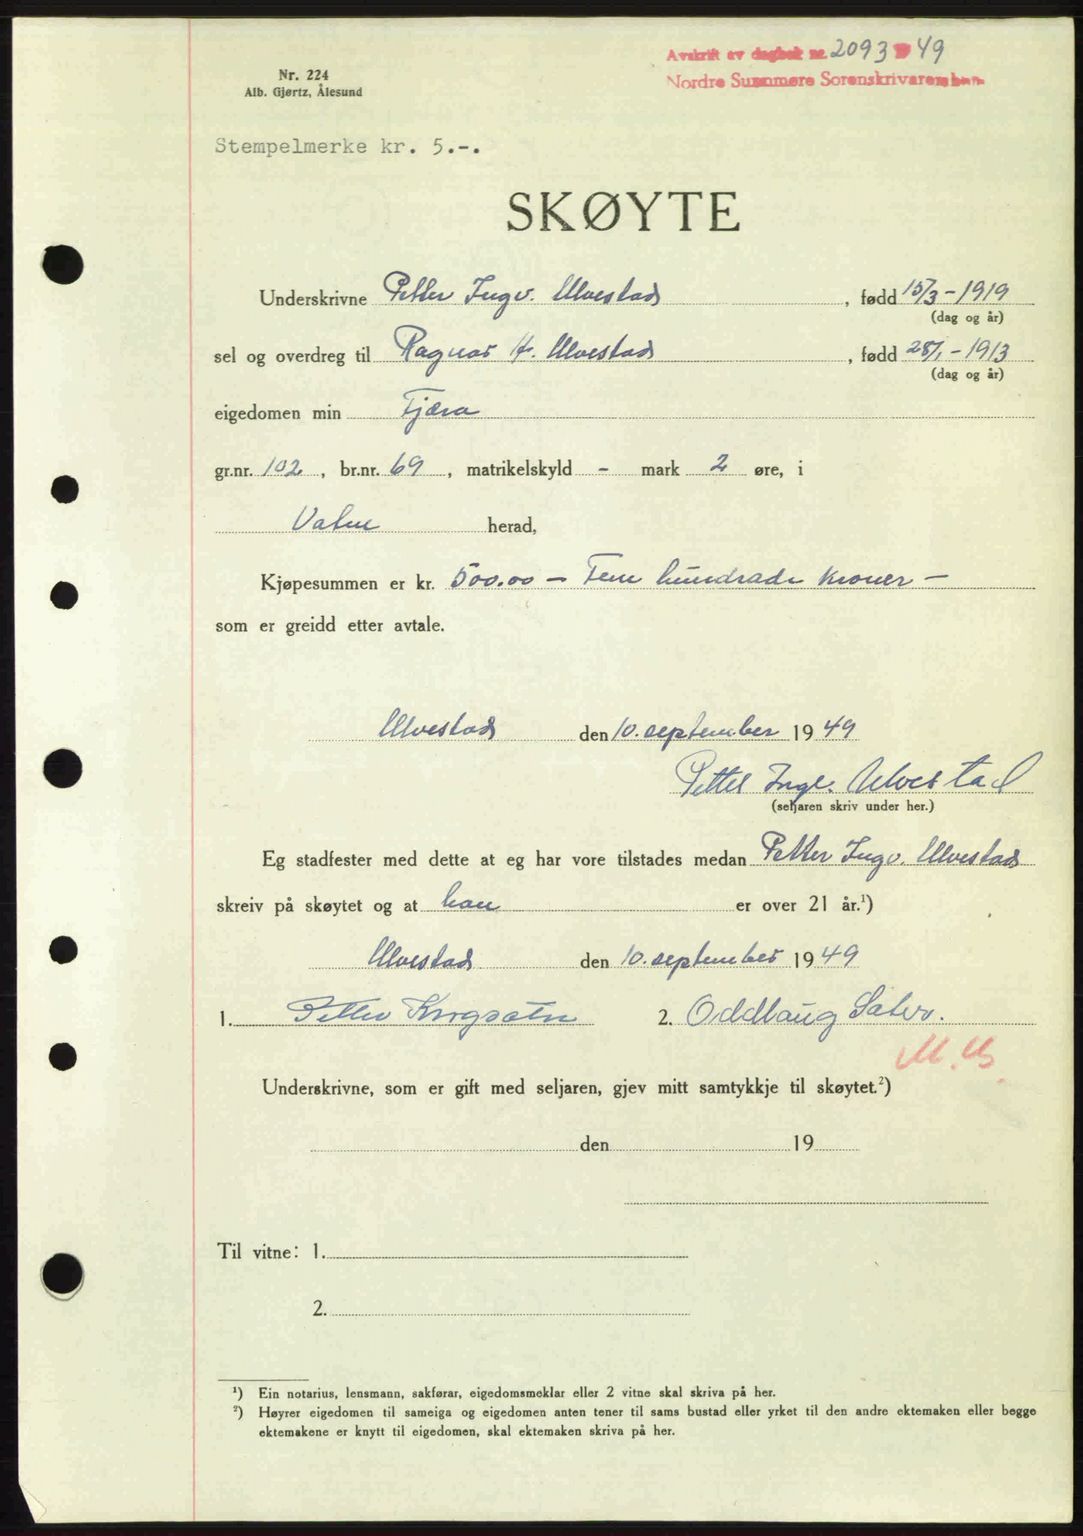 Avskrift av dagbok nr. 2093 19 49
Nordre Sunnmøre Sorenskrivarembete
Nr. 224
Alb. Gjørtz, Ålesund
Stempelmerke kr. 5.-.
SKØYTE
Underskrivne Petter Ingv. Ulvestad, fødd 15/3-1919
(dag og år)
sel og overdreg til Ragnar H. Ulvestad, fødd 28/1-1913
(dag og år)
eigedomen min Fjæra
gr.nr. 102, br.nr. 69, matrikelskyld - mark 2 øre, i
Vatne herad,
Kjøpesummen er kr. 500.00 - Fem hundrade kroner -
som er greidd etter avtale.
Ulvestad den 10. september 1949
Petter Ingv. Ulvestad
(seljaren skriv under her.)
Eg stadfester med dette at eg har vore tilstades medan Petter Ingv. Ulvestad
skreiv på skøytet og at han er over 21 år.¹)
Ulvestad den 10. september 1949
1. Petter 2. Oddlaug
M.U.
Underskrivne, som er gift med seljaren, gjev mitt samtykkje til skøytet.²)
den 19
Til vitne: 1.
2.
¹) Ein notarius, lensmann, sakførar, eigedomsmeklar eller 2 vitne skal skriva på her.
²) Høyrer eigedomen til sameiga og eigedomen anten tener til sams bustad eller yrket til den andre ektemaken eller begge
ektemakene er knytt til eigedomen, skal ektemaken skriva på her.